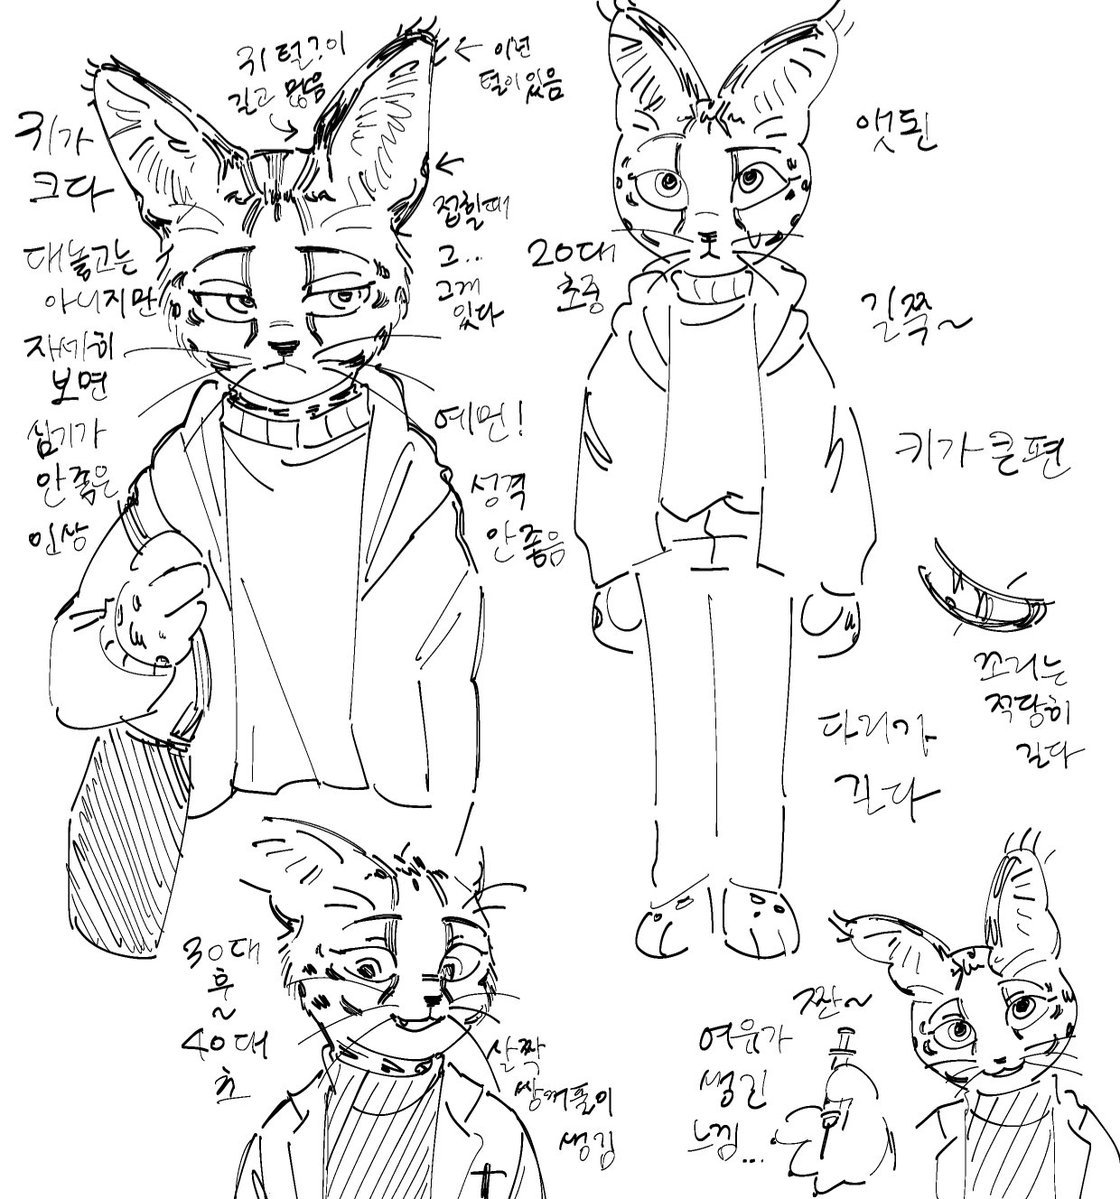 귀 털이
길고 많음
이년
털이 있음
키가
크다
대놓고는
아니지만
자세히
보면
섬기가
안좋은
인상
접힐때
그...
그게
있다
예민!
성격
안좋음
앳된
20대
초중
길쭉~
키가 큰편
꼬리는
적당히
길다
다리가
긴다
30대
후
~
40대
초
살짝
쌍꺼풀이
생김
짠~
여유가
생긴
느낌...